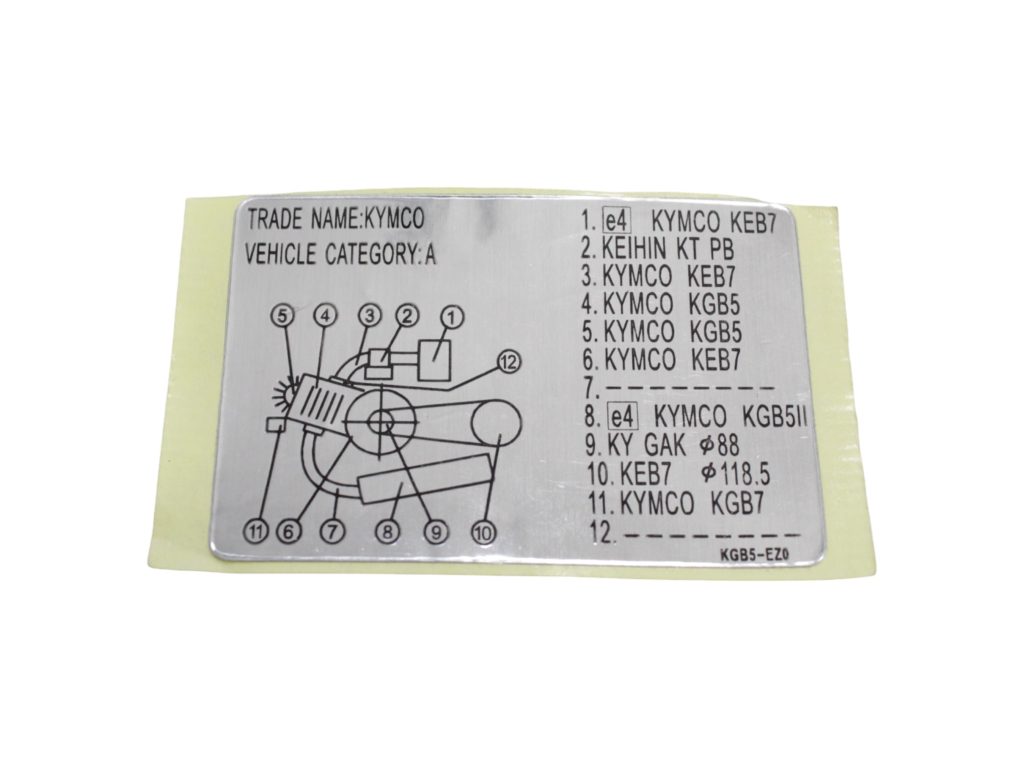 TRADE NAME:KYMCO
VEHICLE CATEGORY:A
5 4 3 2 1
12
11 6 7 8 9 10
1. e4 KYMCO KEB7
2. KEIHIN KT PB
3. KYMCO KEB7
4. KYMCO KGB5
5. KYMCO KGB5
6. KYMCO KEB7
7. ----------
8. e4 KYMCO KGB5II
9. KY GAK ϕ88
10. KEB7 ϕ118.5
11. KYMCO KGB7
12. ----------
KGB5-EZ0